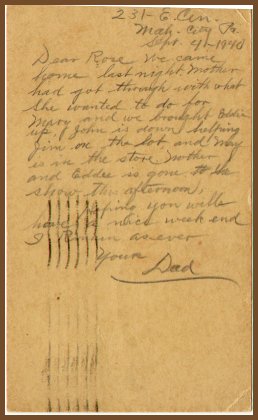 231- E. Cen.
Mah. City Pa.
Sept. 4 - 1940
Dear Rose We came
home last night Mother
had got through with what
she wanted to do for
Mary and we brought Eddie
up, John is down helping
Jim on the lot and May
is in the store Mother
and Eddie is gone to the
show this afternoon,
hoping you will
have a nice week end
I Remain as ever
Yours
Dad